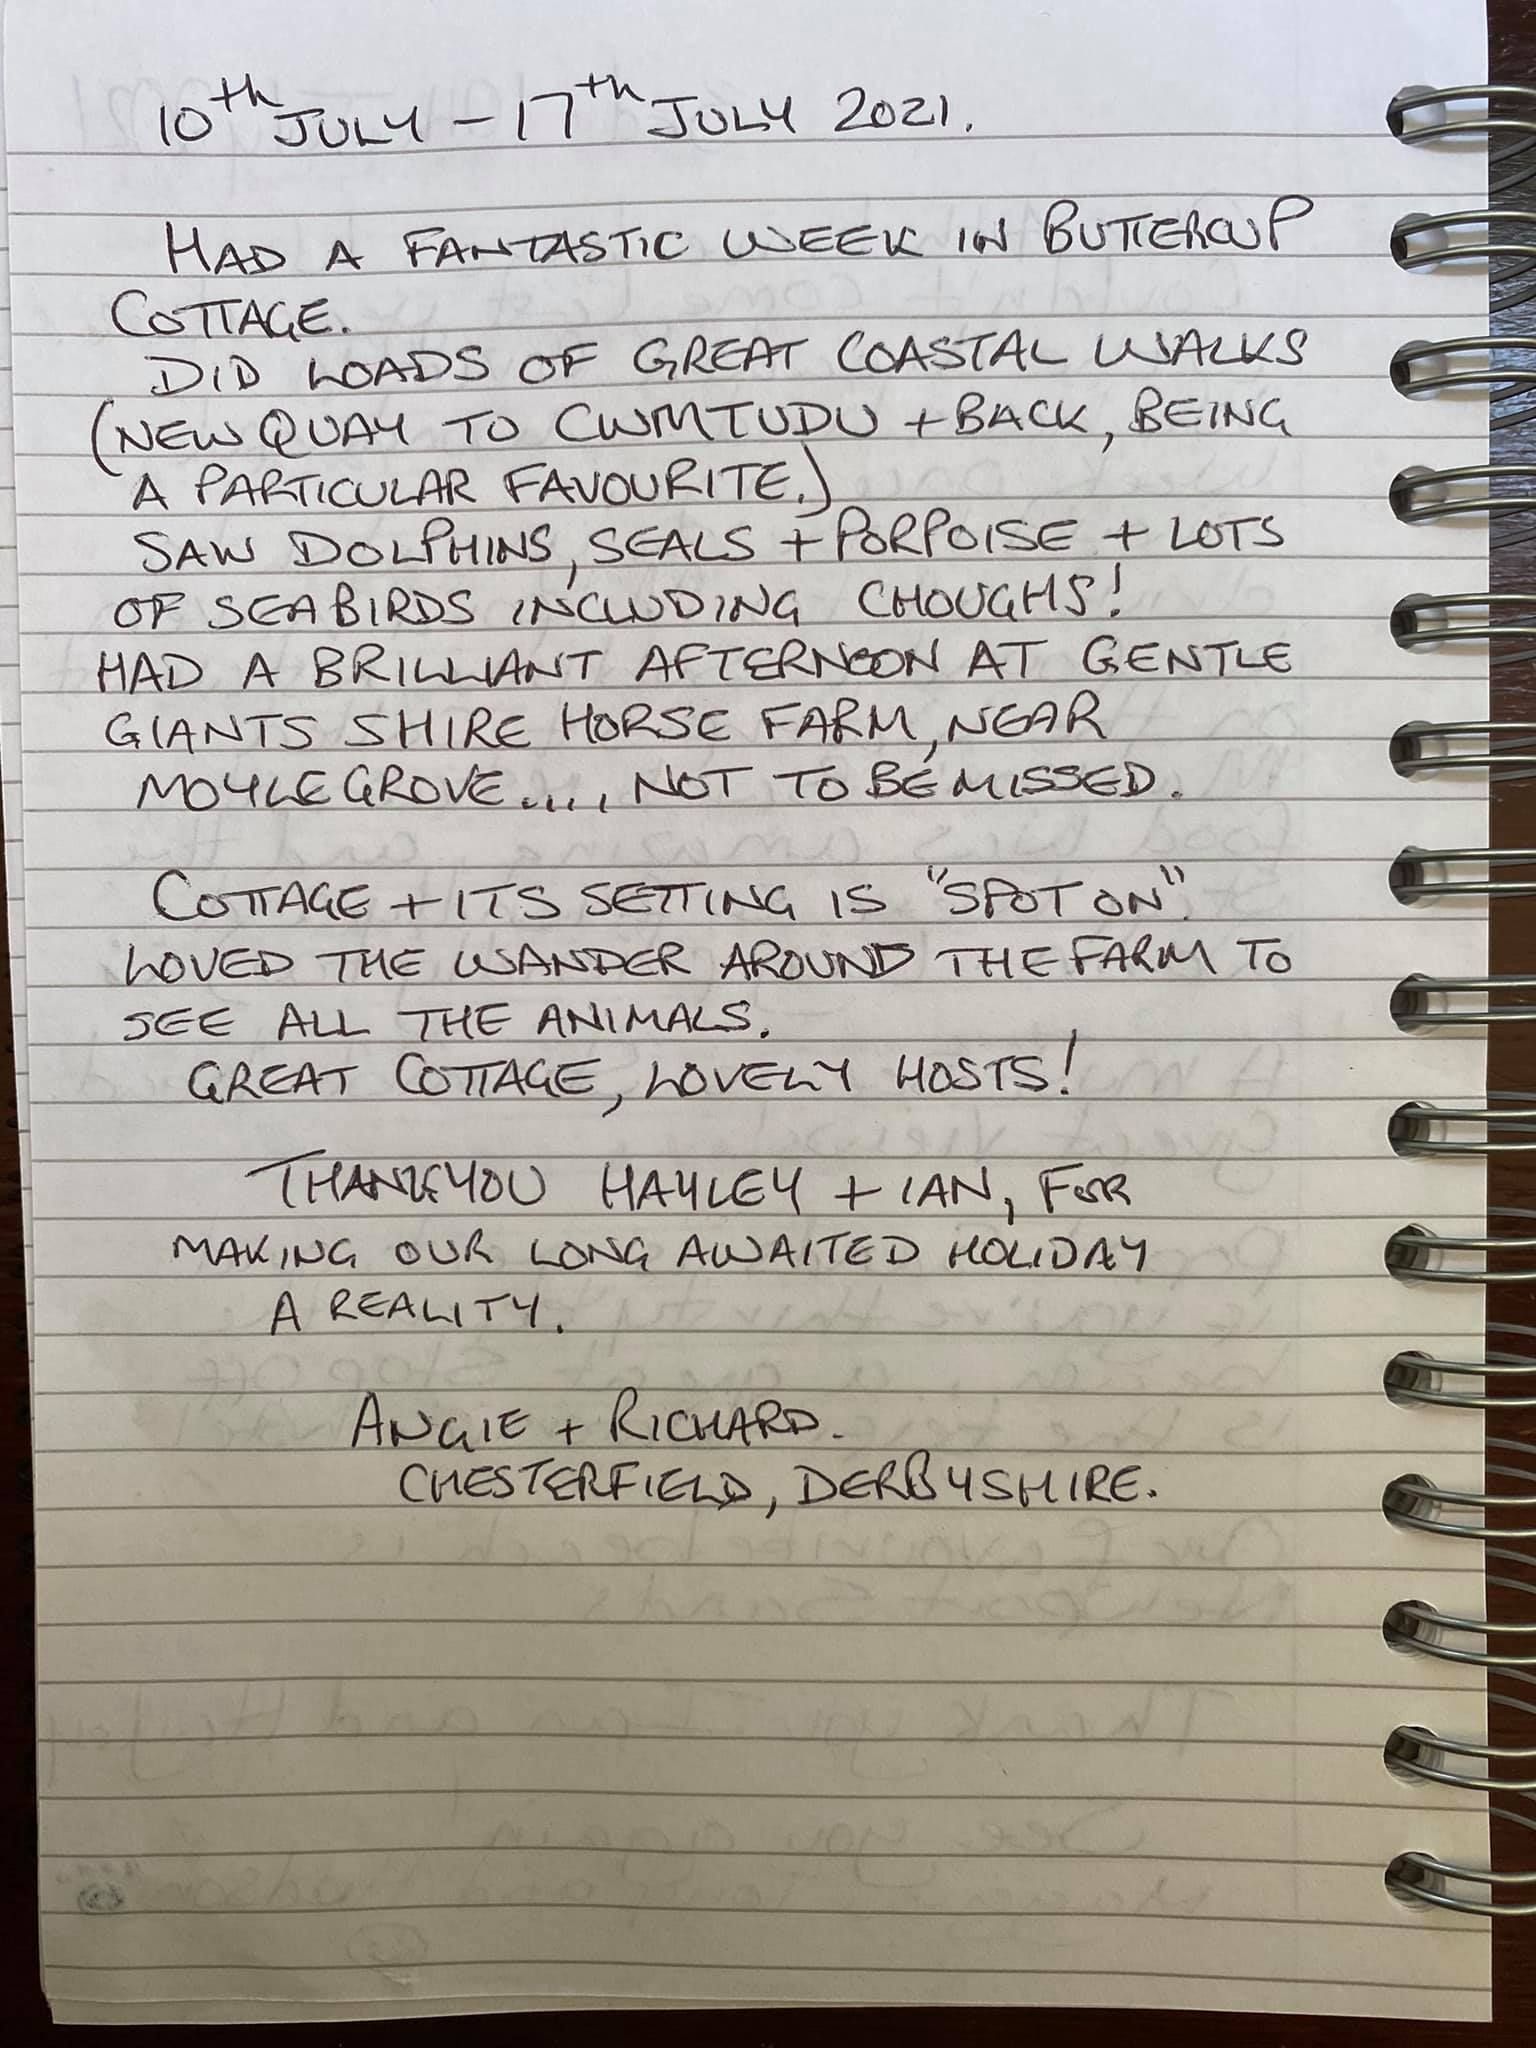 10th JULY - 17th JULY 2021.
HAD A FANTASTIC WEEK IN BUTTERCUP
COTTAGE.
DID LOADS OF GREAT COASTAL WALKS
(NEW QUAY TO CWMTUDU + BACK, BEING
A PARTICULAR FAVOURITE.)
SAW DOLPHINS, SEALS + PORPOISE + LOTS
OF SEABIRDS INCLUDING CHOUGHS!
HAD A BRILLIANT AFTERNOON AT GENTLE
GIANTS SHIRE HORSE FARM, NEAR
MOYLEGROVE...., NOT TO BE MISSED.
COTTAGE + ITS SETTING IS "SPOT ON".
LOVED THE WANDER AROUND THE FARM TO
SEE ALL THE ANIMALS.
GREAT COTTAGE, LOVELY HOSTS!
THANKYOU HAYLEY + IAN, FOR
MAKING OUR LONG AWAITED HOLIDAY
A REALITY.
ANGIE + RICHARD.
CHESTERFIELD, DERBYSHIRE.